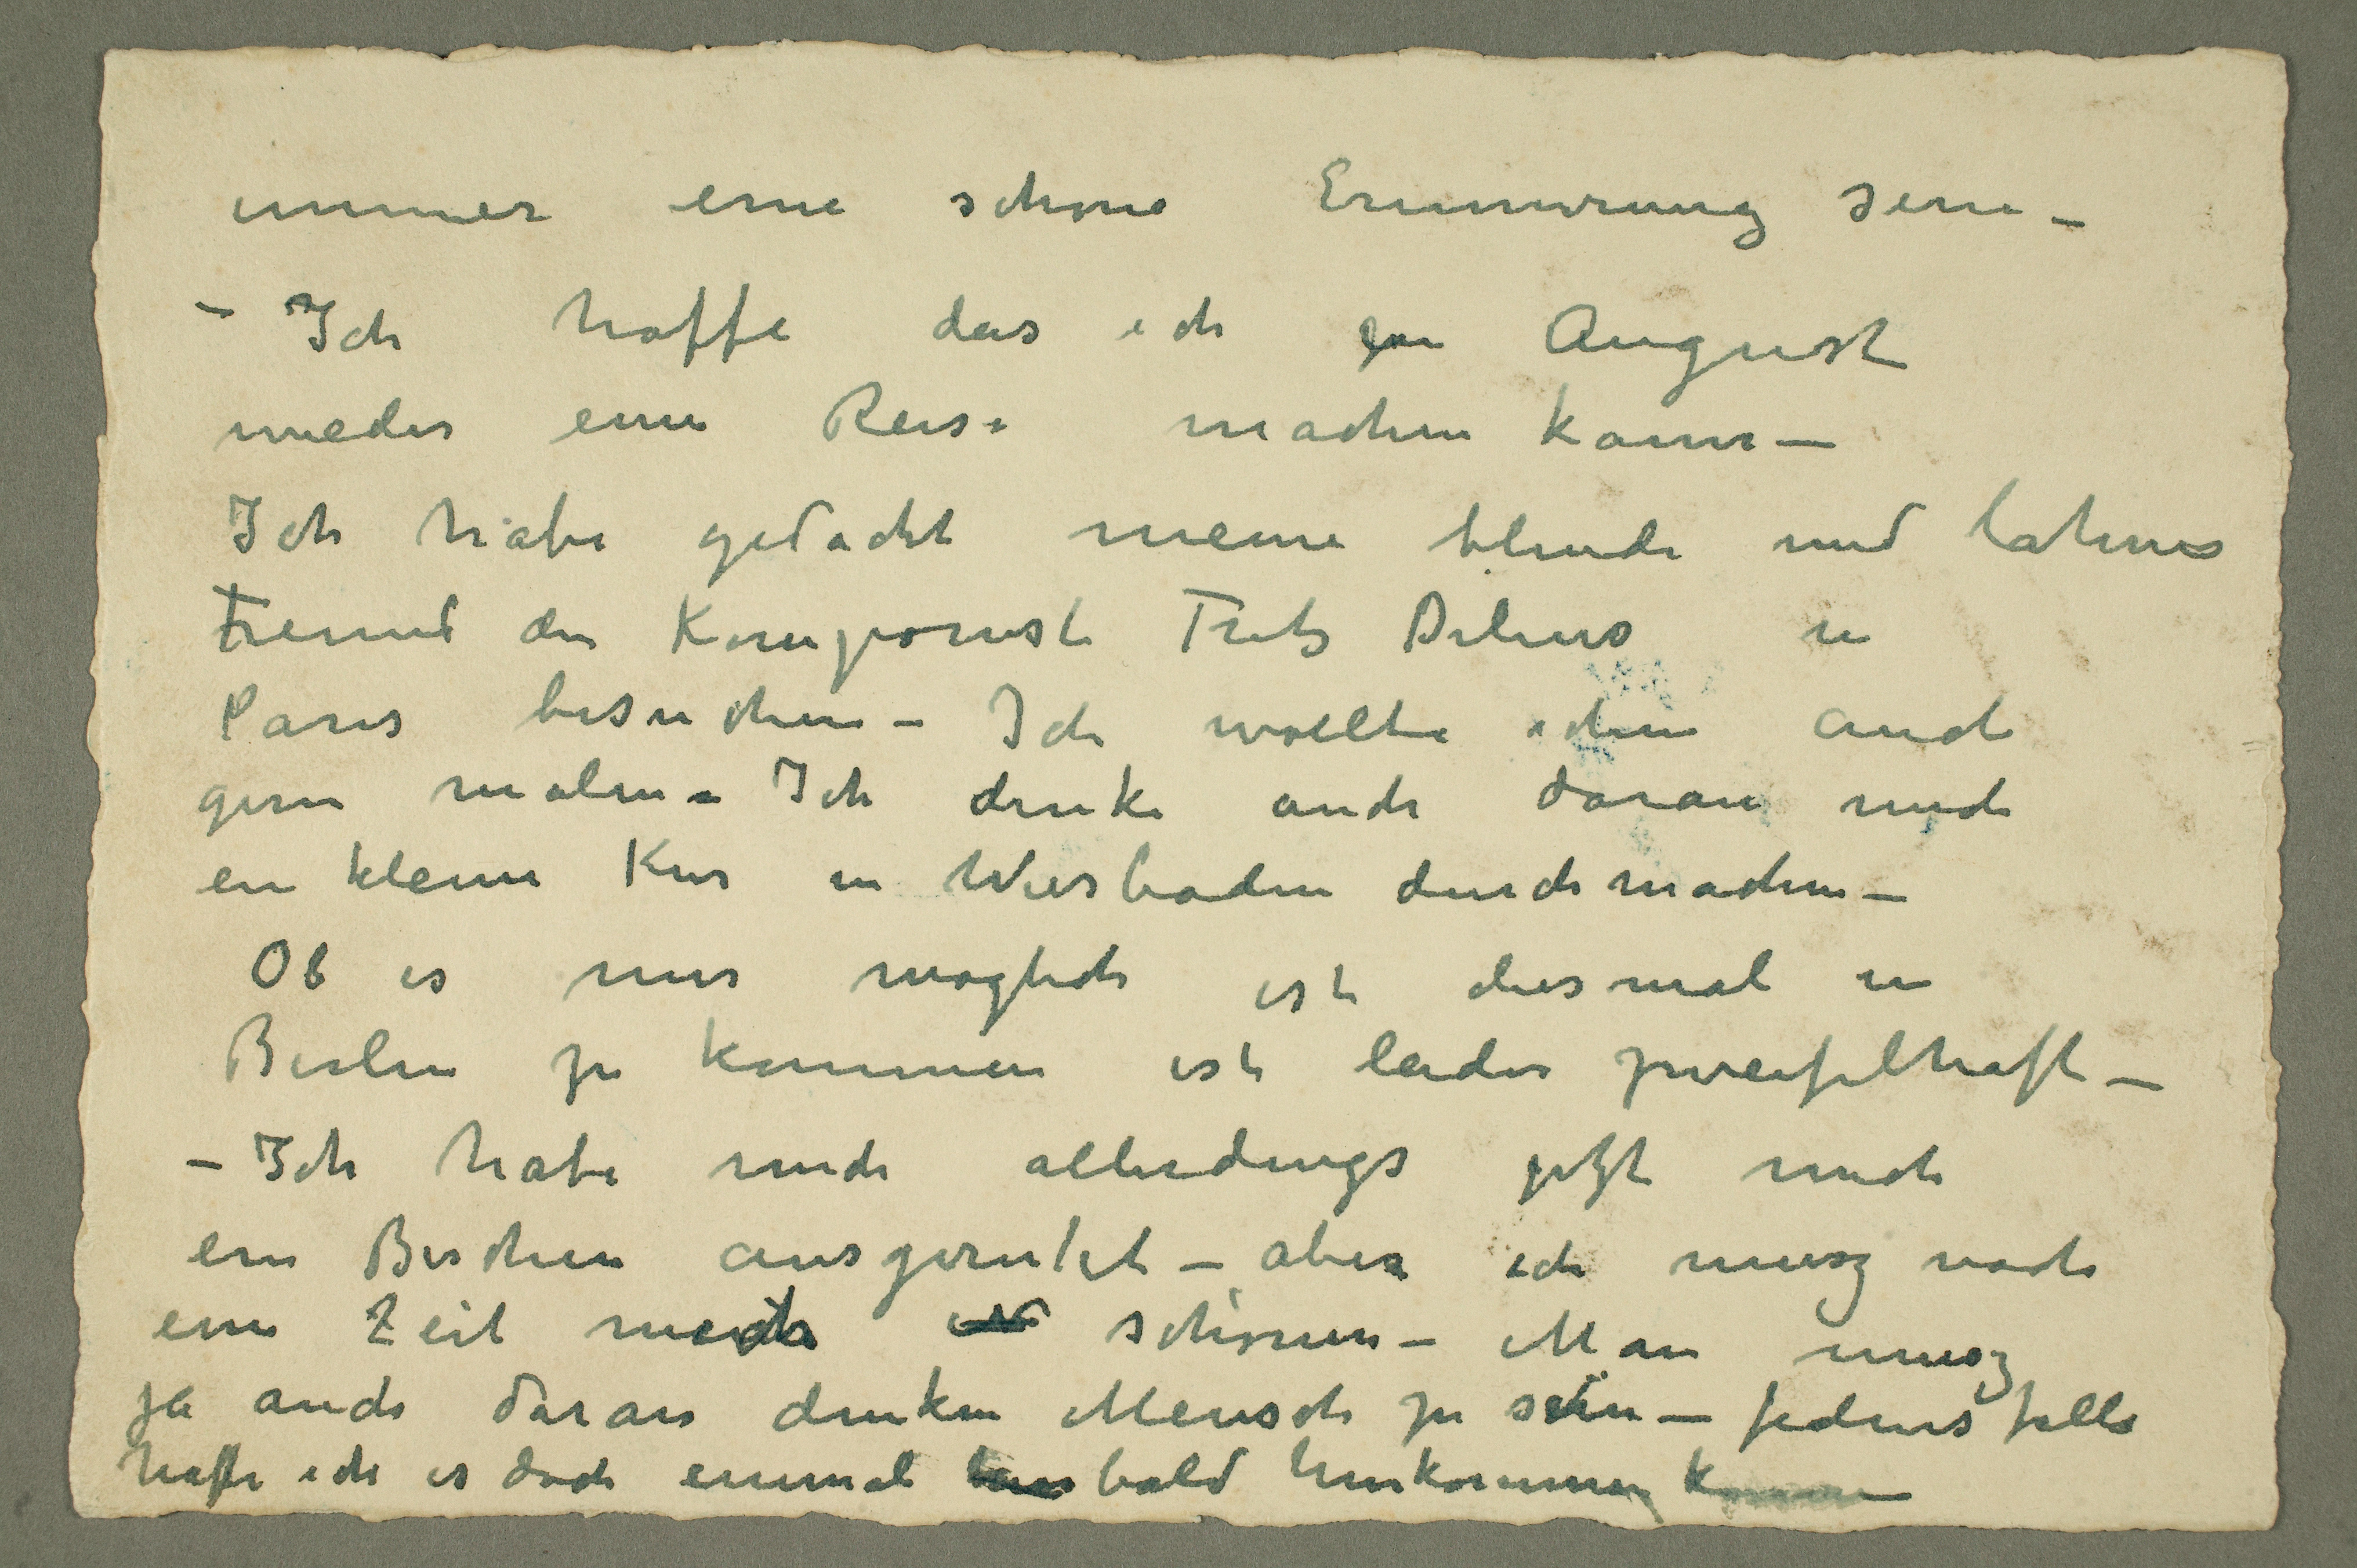 immer eine schöne Erinnerung sein –
– Ich hoffe das ich in August
wieder eine Reise machen kann –
Ich habe gedacht meine blinde und lahme
Freund den Komponiste Fritz Delius in
Paris besuchen – Ich wollte ihm auch
gern malen – Ich denke auch daran mich
ein kleine Kur in Wiesbaden durchmachen –
Ob es mir möglich ist diesmal in
Berlin zu kommen ist leider zweifelhaft –
– Ich habe mich allerdings jetzt mich
ein Bischen ausgerutet – aber ich musz noch
eine Zeit mich schonen – Man musz
ja auch daran denken Mensch zu sein – Jedensfalls
hoffe ich es doch einmal bald hinkommen